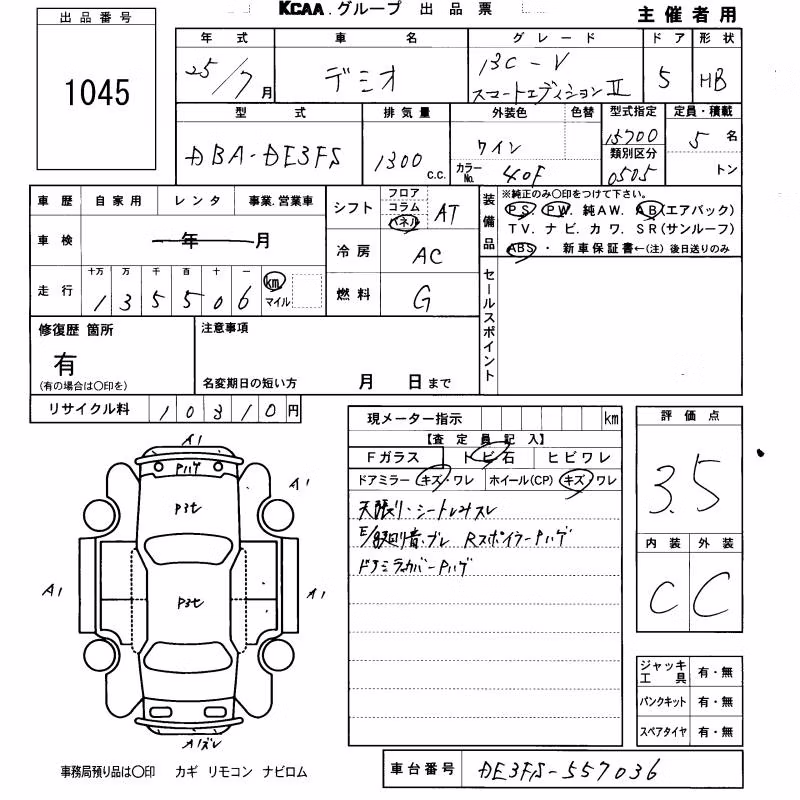 KCAA.グループ 出品票
主催者用
出品番号
1045
年式 車名 グレード ドア 形状
25/7月 デミオ 13C-V スマートエディションⅡ 5 HB
型式 排気量 外装色 色替 型式指定 定員・積載
DBA-DE3FS 1300 C.C. ワイン カラーNo. 40F 15700 5名
類別区分
0505 トン
車歴 自家用 レンタ 事業.営業車
車検 年 月
走行 十万 万 千 百 十 一
1 3 5 5 0 6 km マイル
シフト フロア コラム パネル AT
冷房 AC
燃料 G
装備品 ※純正のみ〇印をつけて下さい。
PS. PW. 純AW. AB(エアバック)
TV. ナビ. カワ. SR(サンルーフ)
ABS・新車保証書←(注)後日送りのみ
セールスポイント
修復歴 箇所
有
(有の場合は〇印を)
注意事項
名変期日の短い方 月 日まで
リサイクル料 10310円
現メーター指示 km
【査定員記入】
Fガラス トビ石 ヒビワレ
ドアミラー キズ・ワレ ホイール(CP) キズ・ワレ
天張り・シートしみスレ
E/G 回音.ブレ RスポイラーPハゲ
ドアミラカバーPハゲ
評価点
3.5
内装 外装
C C
ジャッキ工具 有・無
パンクキット 有・無
スペアタイヤ 有・無
A1
Pハゲ
A1
P3セ
A1
P3セ
A1
A1ズレ
事務局預り品は〇印 カギ リモコン ナビロム
車台番号 DE3FS-557036